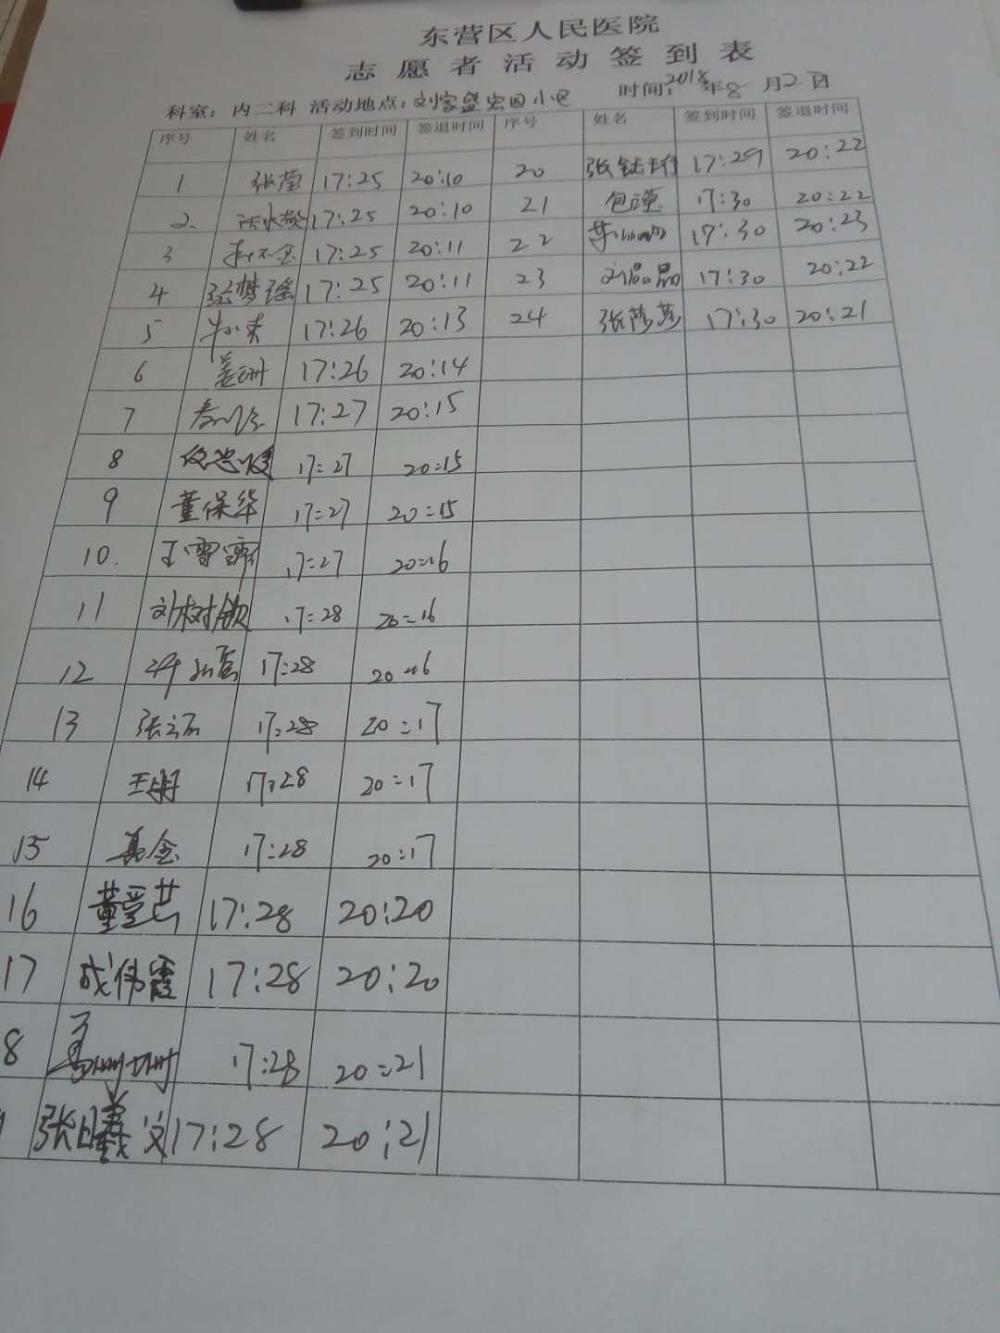 东营区人民医院
志愿者活动签到表
科室：内二科 活动地点：刘家盛宏园小区 时间：2018年8月2日
序号 姓名 签到时间 签退时间 序号 姓名 签到时间 签退时间
1 张莹 17:25 20:10 20 17:29 20:22
2 17:25 20:10 21 包瑾 17:30 20:22
3 17:25 20:11 22 17:30 20:23
4 张梦瑶 17:25 20:11 23 刘晶晶 17:30 20:22
5 17:26 20:13 24 张莎莎 17:30 20:21
6 姜珊 17:26 20:14
7 17:27 20:15
8 17:27 20:15
9 董保华 17:27 20:15
10. 王雪 17:27 20:16
11 刘树 17:28 20:16
12 17:28 20:16
13 张 17:28 20:17
14 王册 17:28 20:17
15 17:28 20:17
16 董 17:28 20:20
17 成伟霞 17:28 20:20
8 17:28 20:21
张曦文 17:28 20:21